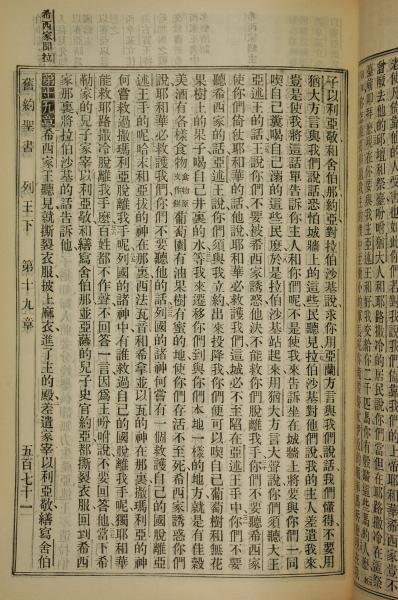 子以利亞敬和舍伯那約亞對拉伯沙基說求你用亞蘭方言與我們說話我們懂得不要用
猶大方言與我們說話恐怕城牆上的這些民聽見拉伯沙基對他們說我的主人差遣我來
豈是使我將這話單告訴你主人和你們呢不是使我來告訴坐在城牆上將要與你們一同
喫自己糞喝自己溺的這些民麽於是拉伯沙基站起來用猶大方言大聲說你們須聽大王
亞述王的話王說你們不要被希西家誘惑他決不能救你們脫離我手你們不要聽希西家
使你們倚靠耶和華的話他說耶和華必救護我們這城必不至陷在亞述王手中你們不要
聽希西家的話亞述王說你們須與我立約出來投降我你們便可以喫自己葡萄樹和無花
果樹上的果子喝自己井裏的水等我來遷移你們到與你們本地一樣的地方就是有佳穀
美酒有各樣食物食物原文作餅葡萄園有油果樹有蜜的地使你們存活不至死希西家誘惑你們
說耶和華必救護我們你們不要聽他的話列國的諸神何嘗有一個救護自己的國脫離亞
述王手的呢哈末和亞拔的神在那裏西法瓦音和希拿並以瓦的神在那裏撒瑪利亞的神
何嘗救過撒瑪利亞脫離我手呢列國的諸神中有誰救過自己的國脫離我手呢獨耶和華
能救耶路撒冷脫離我手麽百姓都不作聲不回答一言因爲王吩咐說不要回答他當下希
勒家的兒子家宰以利亞敬和繕寫舍伯那並亞薩的兒子史官約亞都撕裂衣服回到希西
家那裏將拉伯沙基的話告訴他
第十九章希西家王聽見就撕裂衣服披上麻衣進了主的殿差遣家宰以利亞敬繕寫舍伯
希西家聞拉
舊約聖書 列王下 第十九章 五百七十一